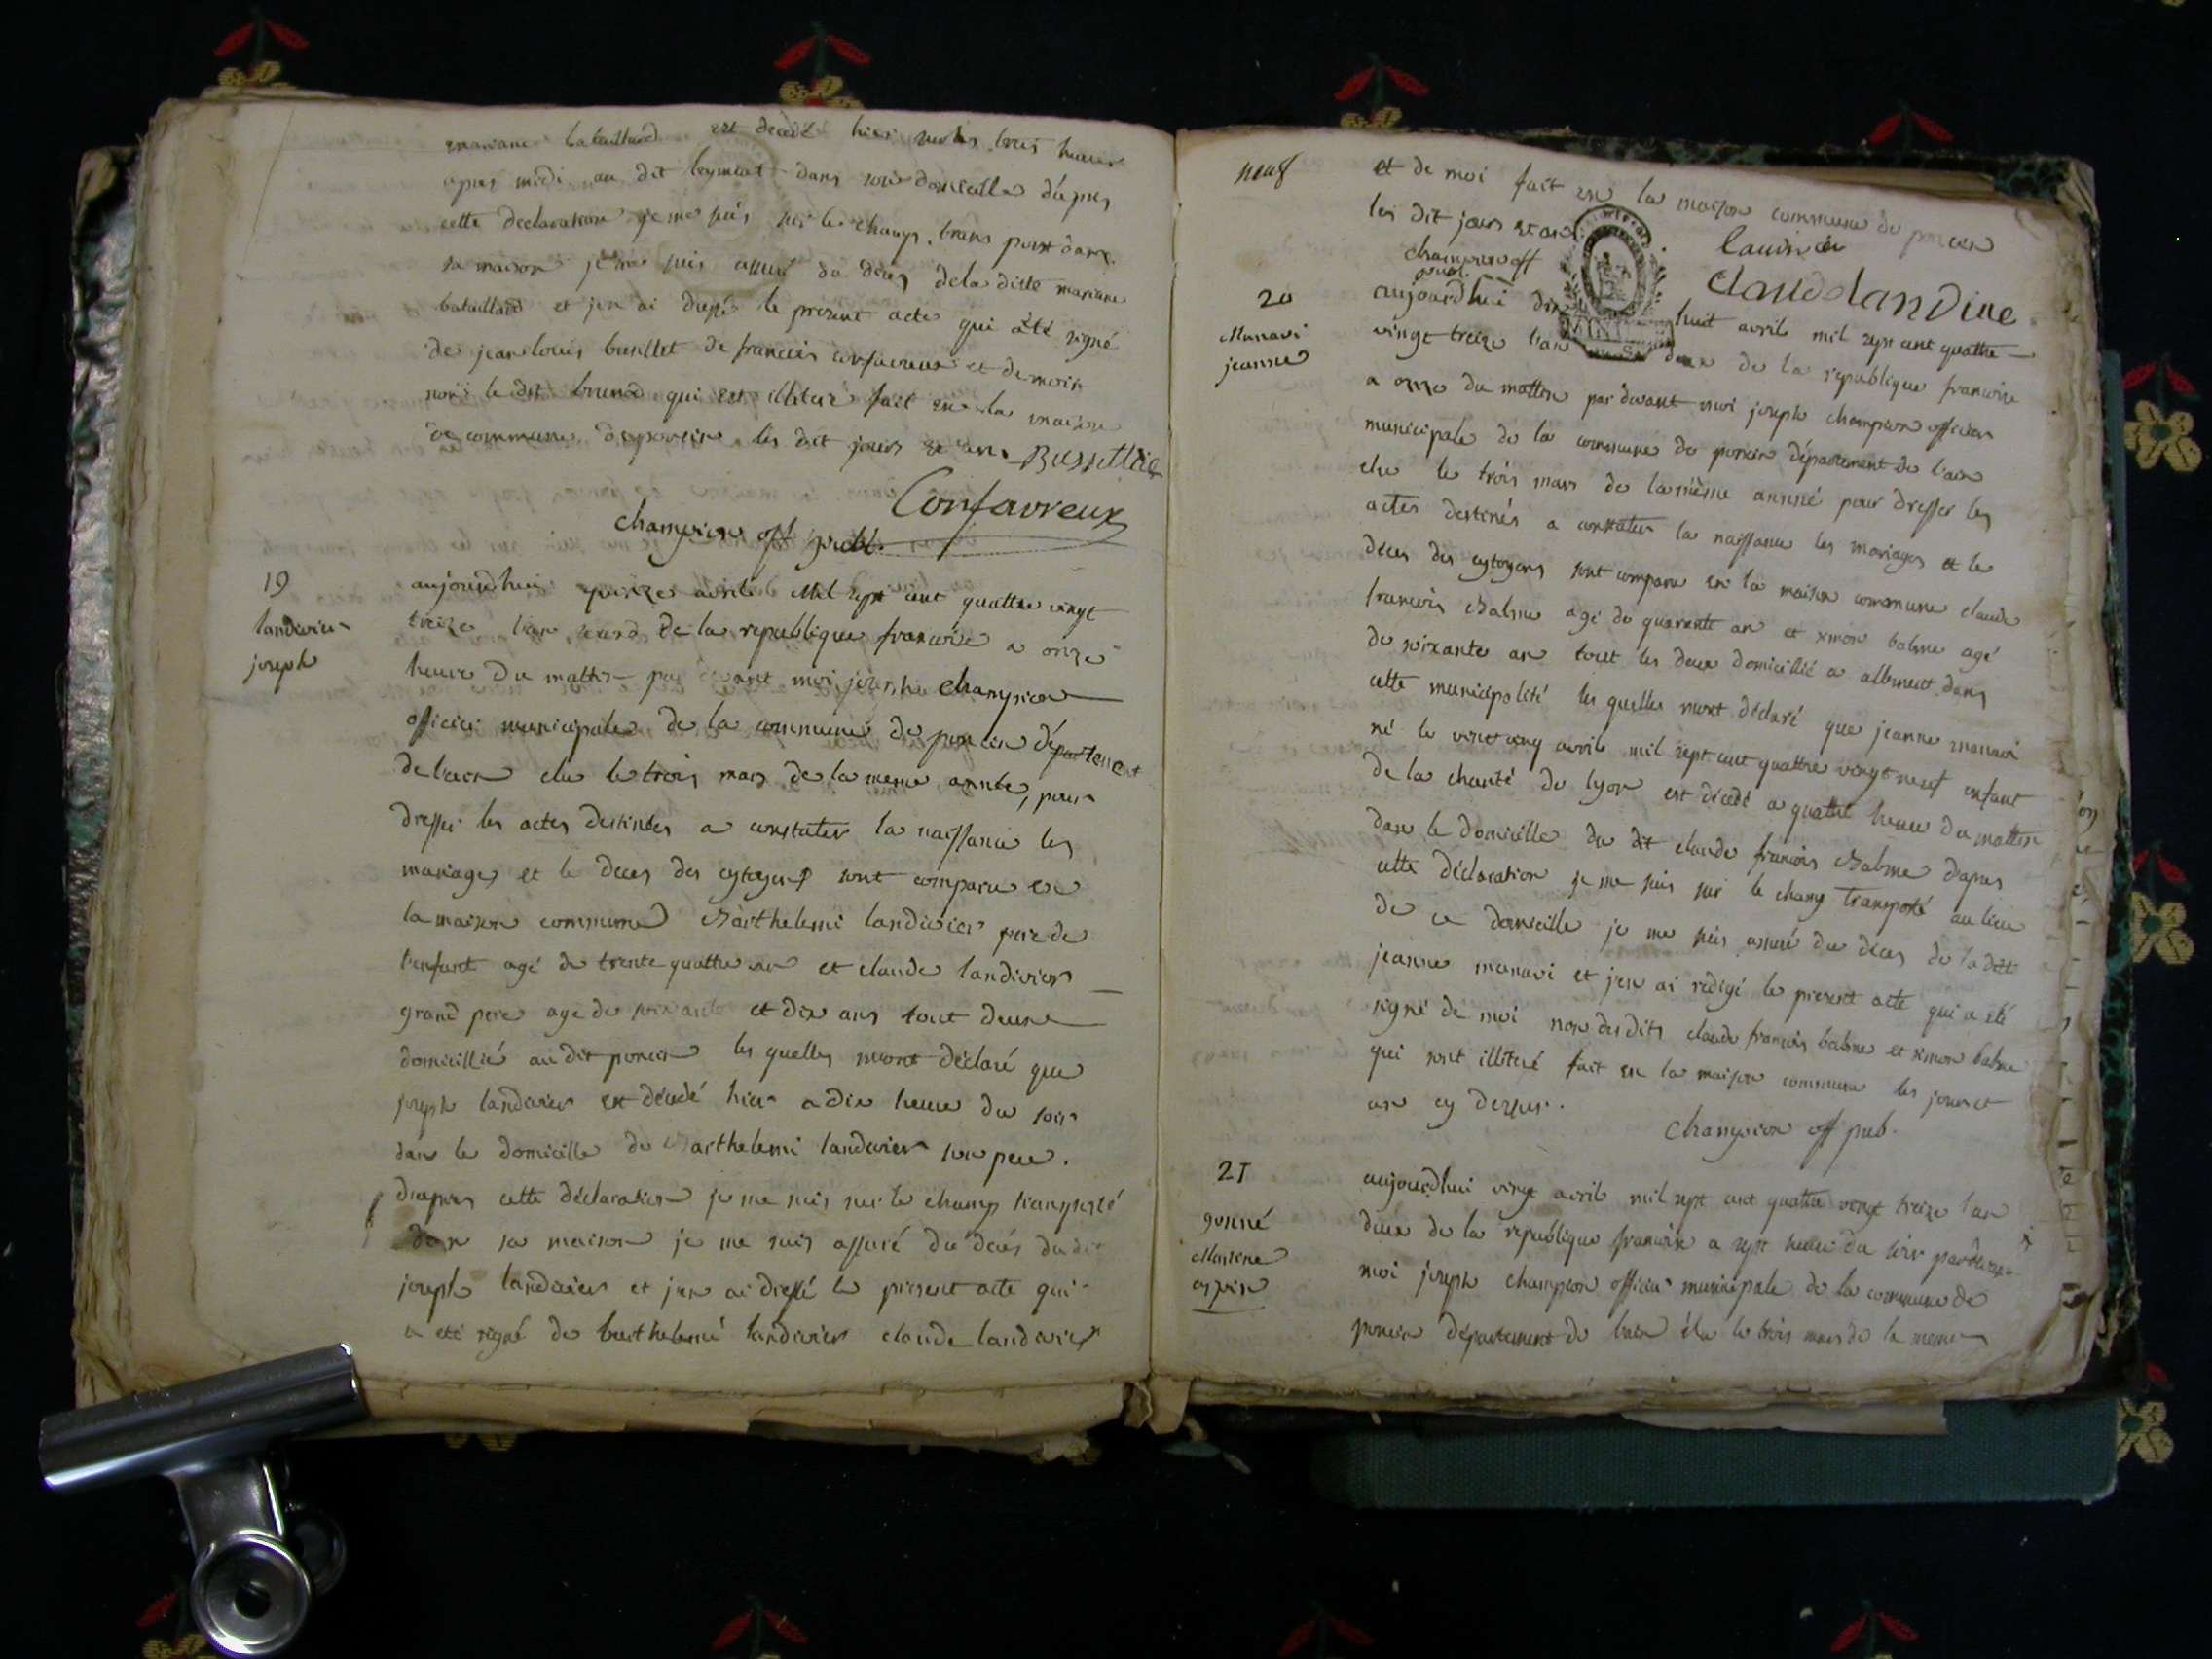 mariane bataillard est decedé hier verls trois heure
apres midi au dit leymiat dans son domicille d'apres
cette declaration je me suis sur le champ transporté dans
sa maison je me suis assuré du deces de la ditte mariane
bataillard et jen ai dressé le present acte qui a été signé
de jean louis busillet de francois confavreux et de moi
non le dit brunod qui est illiteré fait en la maison
de commune de poncin les dit jours et an. Bussillet
Confavreux
champion off publ.
19
landivier
joseph
aujourdhui quinze avrile Mil sept cent quattre vingt
treize l'an second de la republique francoise a onze
heure du mattin par devant moi joseph champion
officier municipale de la commune de poncin département
de l'ain elu le trois mars de la meme année, pour
dresser les actes destinées a constater la naissance les
mariages et le deces des cytoyens sont comparu en
la maison commune Barthelemi landivier pere de
l'enfant agé de trente quattre an et claude landivier
grand pere age de soixante et dix ans tout deux
domicillié au dit poncin les quelles mont déclaré que
joseph landivier est décédé hier a dix heure du soir
dans le domicille de Barthelemi landivier son pere.
d'apres cette déclaration je me suis sur le champ transporté
dans sa maison je me suis assuré du décés du dit
joseph landivier et jen ai dressé le present acte qui
a eté signé de barthelemi landivier claude landivier
neuf
et de moi fait en la maison commune de poncin
les dit jours et an
landivier
champion off
publ.
Claude landivie
20
Manavi
jeanne
aujourdhui dix huit avril mil sept cent quattre
vingt treize l'an deux de la republique francoise
a onze du mattin par devant moi joseph champion officier
municipale de la commune de poncin département de l'ain
elu le trois mars de la même année pour dresser les
actes destinés a constater la naissance les mariages et le
deces des cytoyens sont comparu en la maison commune claude
francois Balme agé de quarente an et ximon balme agé
de soixante an tout les deux domicillié a allement dans
cette municipolité les quelles mont déclaré que jeanne manavi
né le vint cinq avrile mil sept cent quattre vingt neuf enfant
de la charité de lyon est décedé a quattre heure du mattin
dans le domicille du dit claude francois Balme d'apres
cette déclaration je me suis sur le champ transporté au lieu
de ce domicille je me suis assuré du deces de la dite
jeanne manavi et jen ai redigé le present acte qui a eté
signé de moi non desdits claude francois balme et ximon balme
qui sont illiteré fait en la maison commune les jours et
an cy dessus.
Champion off pub.
21
gonné
Mariene
aujourdhui vingt avrile mil sept cent quattre vingt treize l'an
deux de la république francoise a sept heure du soir pardevant
moi joseph champion officier municipale de la commune de
poncin département de l'ain élu le trois mars de la meme